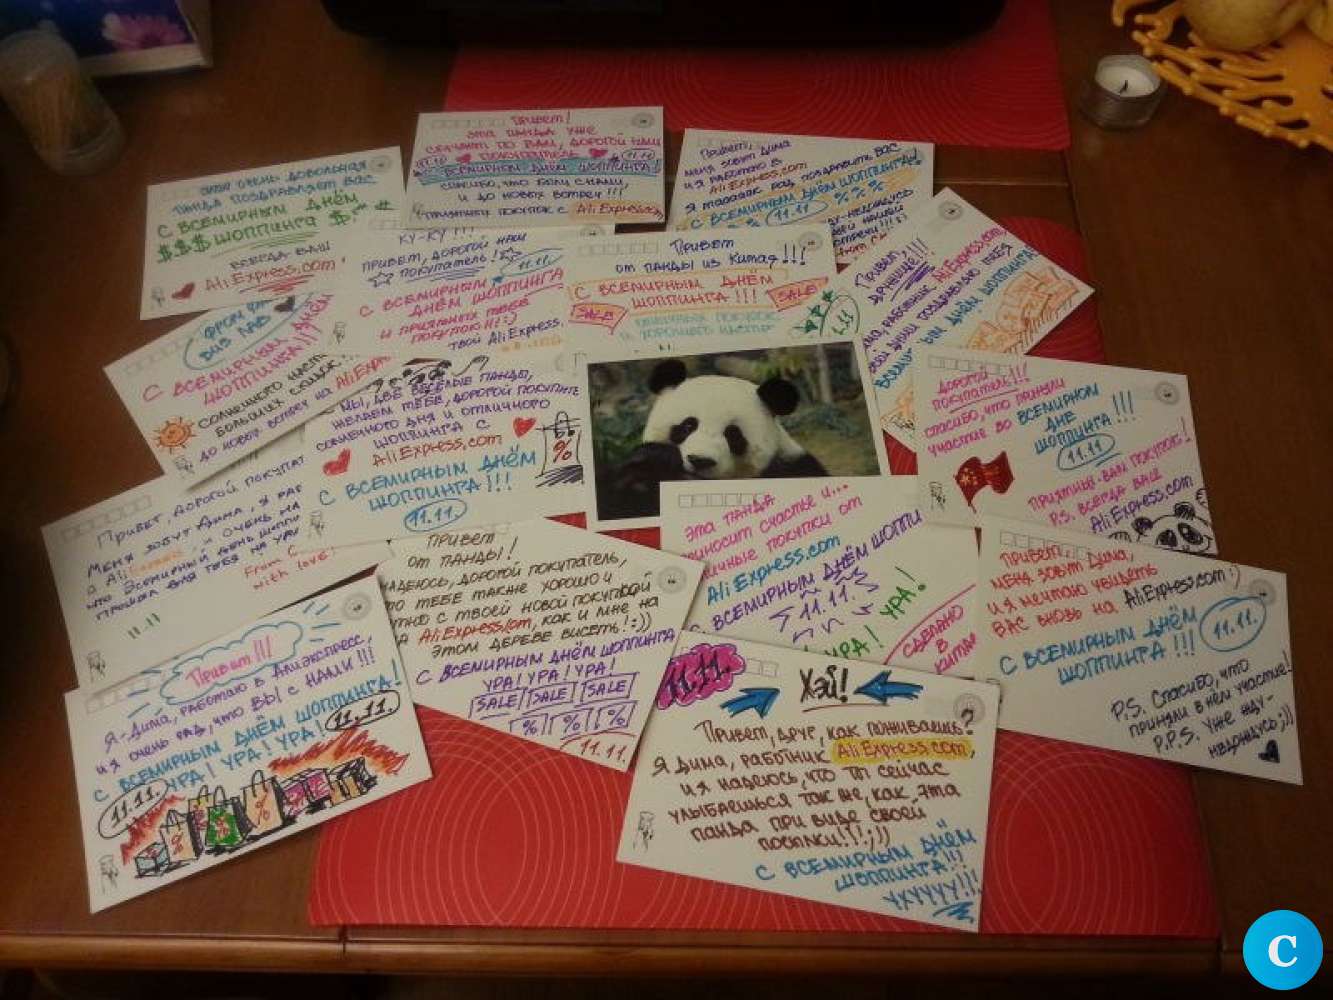 Эта очень довольная
панда поздравляет вас
с всемирным днём
$$$ шоппинга $
всегда ваш
AliExpress.com
Привет!
Эта панда уже
скучает по вам, дорогой наш
11.11 покупатель 11.11
с всемирным днём шоппинга!
Спасибо, что были с нами,
и до новых встреч!!!
Приятных покупок с AliExpress.com
Привет,
меня зовут Дима
и я работаю в
AliExpress.com
с всемирным днём шоппинга!
11.11 % % %
Ку-ку!!!
Привет, дорогой наш
покупатель!
11.11.
с всемирным
днём шоппинга
и приятных тебе
покупок!!! :)
твой AliExpress.
Привет
от панды из Китая!!!
с всемирным днём
шоппинга!!!
SALE SALE
11.11
Привет,
дружище!!!
AliExpress.com
днём шоппинга!
с всемирным днём
шоппинга!!
солнечного
больших скидок
до новых встреч на AliExpress
Мы, две весёлые панды,
желаем тебе, дорогой покупатель
солнечного дня и отличного
шоппинга с
AliExpress.com
%
с всемирным днём
шоппинга!!!
11.11.
Дорогой
покупатель!!!
спасибо, что приняли
участие во всемирном
дне
шоппинга!!!
11.11
Приятных вам покупок!
P.S. всегда ваш
AliExpress.com
Привет, дорогой
Меня зовут Дима, я
а Ali и очень
что Всемирный день
прошёл для тебя на ура
From C
with love
11.11
Привет
от панды!
надеюсь, дорогой покупатель,
что тебе также хорошо и
с твоей новой покупкой
на AliExpress.com, как и мне на
этом дереве висеть! :))
с всемирным днём шоппинга
ура! ура! ура!
SALE SALE SALE
% % %
11.11.
Эта панда
приносит счастье и...
отличные покупки от
AliExpress.com
с всемирным днём
11.11.
ура! ура!
Сделано
в
Китае
Привет,
меня зовут Дима,
и я мечтаю увидеть
вас вновь на AliExpress.com :)
с всемирным днём
шоппинга!!! 11.11.
P.S. Спасибо, что
приняли в нём участие!
P.P.S. Уже жду-
недождусь;))
Привет!!!
Я - Дима, работаю в Алиэкспресс,
и я очень рад, что вы с нами!!!
с всемирным днём шоппинга!
ура! ура! ура! 11.11.
11.11.
% $ % SALE
11.11. Хэй!
Привет, друг, как поживаешь?
Я Дима, работник AliExpress.com,
и я надеюсь, что ты сейчас
улыбаешься так же, как эта
панда при виде своей
посылки!!! ;))
с всемирным днём
шоппинга!!!
Ухуууу!!!
C